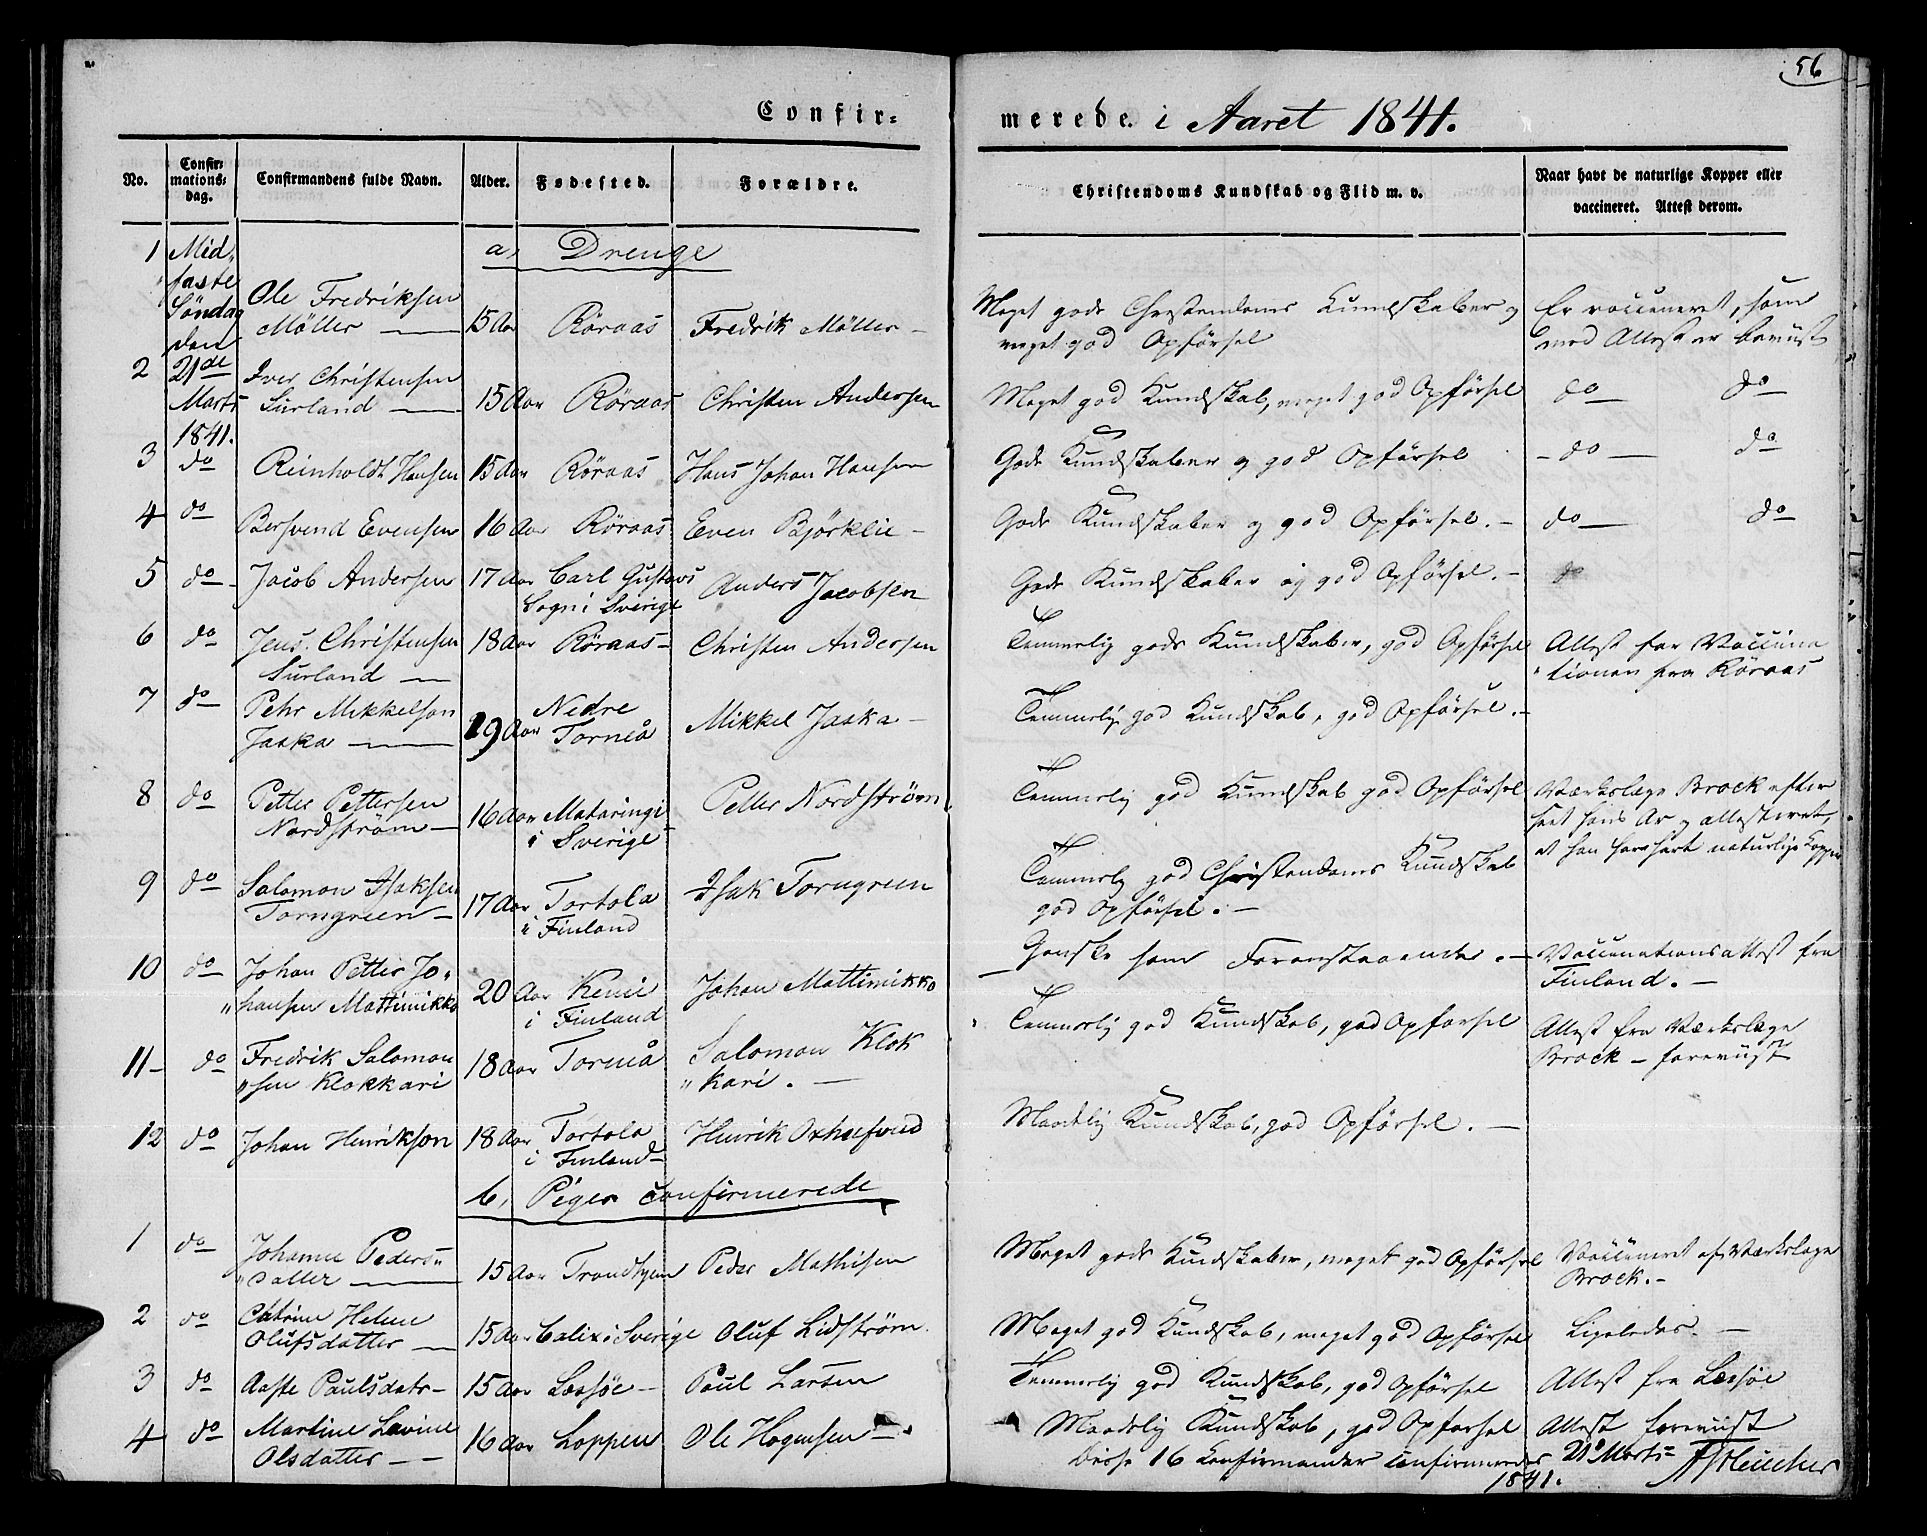 56
Confirmerede. i Aaret 1841.
No. Confirmationsdag. Confirmandens fulde Navn. Alder. Fødested. Forældre. Christendoms Kundskab og Flid m. v. Naar havt de naturlige Kopper eller vaccineret. Attest derom.
a, Drenge
1 Midfaste Søndag den 21de Marts 1841. Ole Fredriksen Møller 15 Aar Røraas Fredrik Møller Meget gode Christendoms Kundskaber og meget god Opførsel Er vaccineret, som med Attest er beviist
2 Iver Christensen Surland 15 Aar Røraas Christen Andersen Meget god Kundskab, meget god Opførsel do do
3 do Reinholdt Hansen 15 Aar Røraas Hans Johan Hansen Gode Kundskaber og god Opførsel do do
4 do Bersvend Evensen 16 Aar Røraas Even Bjørklie Gode Kundskaber og god Opførsel. do do
5 do Jacob Andersen 17 Aar Carl Gustavs Sogn i Sverige Anders Jacobsen Gode Kundskaber og god Opførsel. do
6 do Jens Christensen Surland 18 Aar Røraas Christen Andersen Temmelig gode Kundskaber, god Opførsel Attest for Vaccinationen fra Røraas
7 do Pehr Mikkelson Jaska 19 Aar Nedre Torneå Mikkel Jaska Temmelig god Kundskab, god Opførsel.
8 do Petter Pettersen Nordstrøm 16 Aar Mataringi i Sverige Petter Nordstrøm Temmelig god Kundskab god Opførsel Værkslæge Brock efterseet hans Ar og attesteret, at han have havt naturlige Kopper
9 do Salomon Isaksen Torngreen 17 Aar Tortola i Finland Isak Torngreen Temmelig god Christendoms Kundskab god Opførsel.
10 do Johan Petter Johansen Mattinikko 20 Aar Kemi i Finland Johan Mattinikko Ganske som Foranstaaende. Vaccinationsattest fra Finland.
11 do Fredrik Salomonsen Klokkari 18 Aar Torneå Salomon Klokkari. Temmelig god Kundskab, god Opførsel Attest fra Værkslæge Brock foreviist
12 do Johan Henrikson 18 Aar Tortola i Finland Henrik Oxhufvud Maadelig Kundskab, god Opførsel.
b, Piger confirmerede
1 do Johanne Pedersdatter 15 Aar Trondhjem Peder Mathisen Meget gode Kundskaber, meget god Opførsel Vaccineret af Værkslæge Brock.
2 do Catrine Helene Olufsdatter 15 Aar Calix i Sverige Oluf Lidstrøm Meget god Kundskab, meget god Opførsel Ligeledes.
3 do Aaste Paulsdatr 15 Aar Lessøe Poul Larsen Temmelig god Kundskab, god Opførsel Attest fra Lessøe
4 do Martine Lovine Olsdatter 16 Aar Loppen Ole Hogensen Maadelig Kundskab, god Opførsel Attest foreviist
Disse 16 Confirmander confirmeredes 21 Marts 1841.